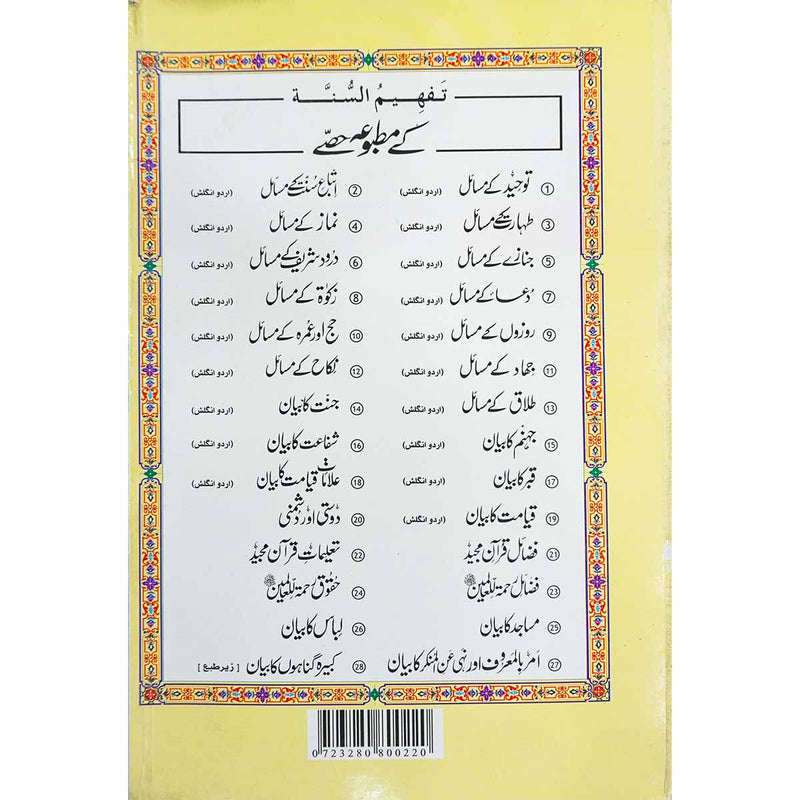 تَفهِيمُ السُّنَّة
کے مطبوعہ حصے
① توحید کے مسائل (اردو انگلش) ② اتباع سُنت کے مسائل (اردو انگلش)
③ طہارت کے مسائل (اردو انگلش) ④ نماز کے مسائل (اردو انگلش)
⑤ جنازے کے مسائل (اردو انگلش) ⑥ درود شریف کے مسائل (اردو انگلش)
⑦ دُعا کے مسائل (اردو انگلش) ⑧ زکوٰۃ کے مسائل (اردو انگلش)
⑨ روزوں کے مسائل (اردو انگلش) ⑩ حج اور عُمرہ کے مسائل (اردو انگلش)
⑪ جہاد کے مسائل (اردو انگلش) ⑫ نکاح کے مسائل (اردو انگلش)
⑬ طلاق کے مسائل (اردو انگلش) ⑭ جنت کا بیان (اردو انگلش)
⑮ جہنم کا بیان (اردو انگلش) ⑯ شفاعت کا بیان (اردو انگلش)
⑰ قبر کا بیان (اردو انگلش) ⑱ علاماتِ قیامت کا بیان (اردو انگلش)
⑲ قیامت کا بیان (اردو انگلش) ⑳ دوستی اور دشمنی
㉑ فضائل قرآن مجید ㉒ تعلیماتِ قرآن مجید
㉓ فضائل رحمۃ للعالمین ﷺ ㉔ حقوق رحمۃ للعالمین ﷺ
㉕ مساجد کا بیان ㉖ لباس کا بیان
㉗ امر بالمعروف اور نہی عن المنکر کا بیان ㉘ کبیرہ گناہوں کا بیان [زیر طبع]
0 723280 800220